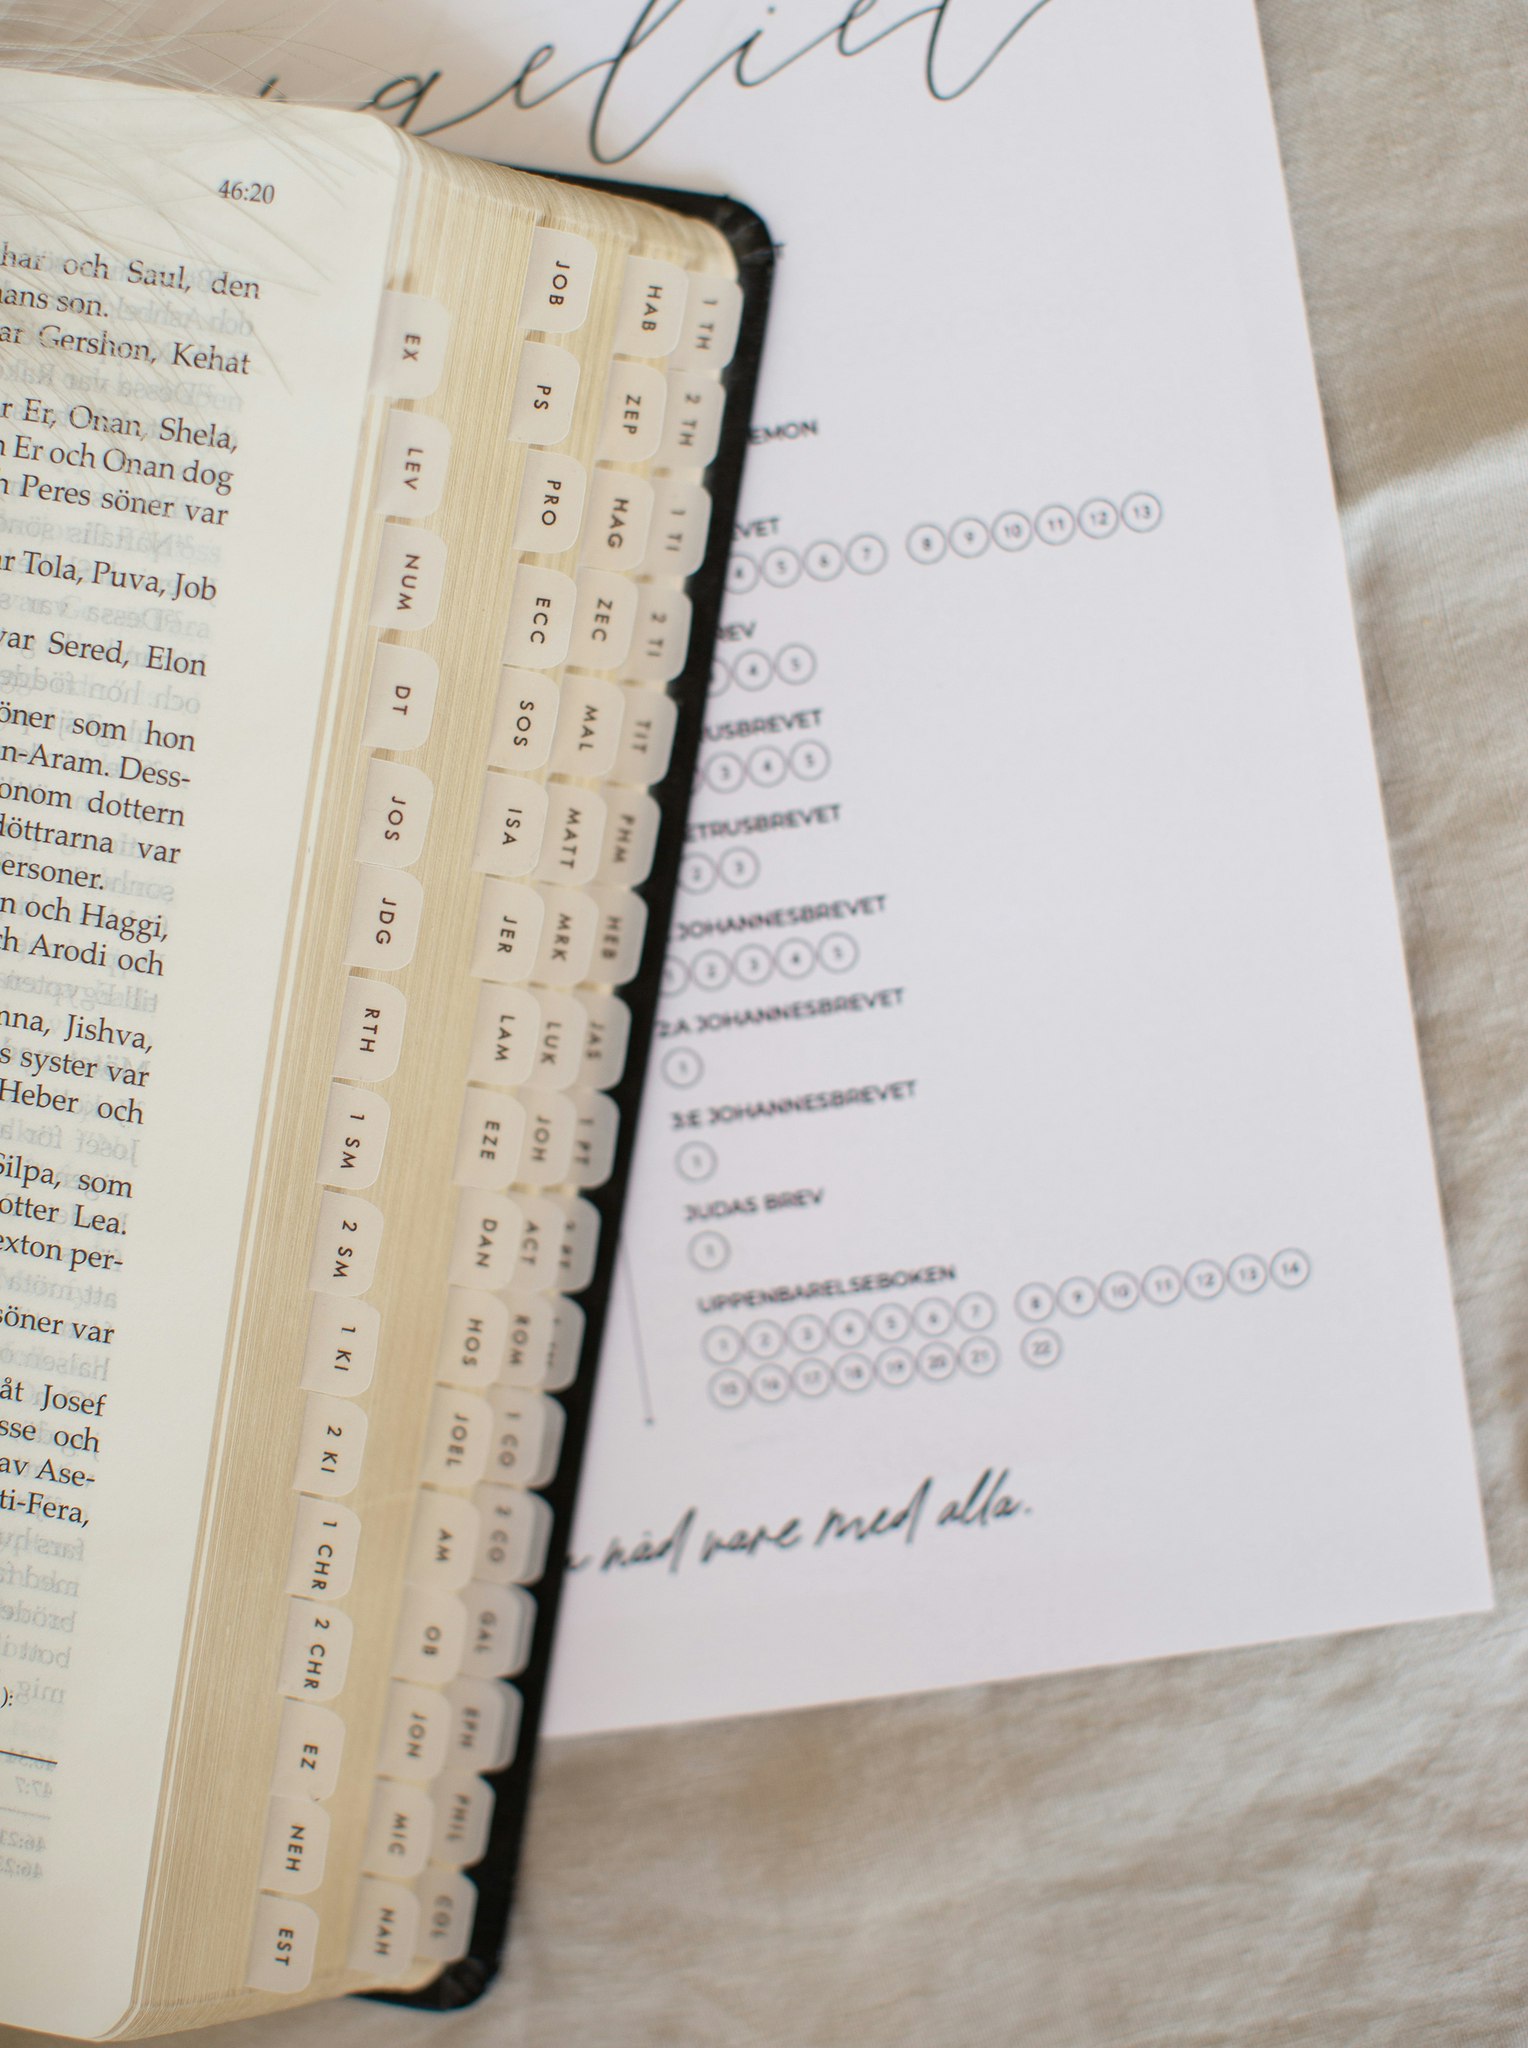 46:20
och Saul, den
son.
Gershon, Kehat
Er, Onan, Shela,
Er och Onan dog
Peres söner var
Tola, Puva, Job
var Sered, Elon
som hon
n-Aram. Dess-
dottern
var
och Haggi,
Arodi och
Jishva,
syster var
Heber och
Silpa, som
Lea.
per-
söner var
åt Josef
och
av Ase-
ti-Fera,
):
EX
LEV
NUM
DT
JOS
JDG
RTH
1 SM
2 SM
1 KI
2 KI
1 CHR
2 CHR
EZ
NEH
EST
JOB
PS
PRO
ECC
SOS
ISA
JER
LAM
EZE
DAN
HOS
JOEL
AM
OB
JON
MIC
NAH
HAB
ZEP
HAG
ZEC
MAL
MATT
MRK
LUK
JOH
ACT
ROM
1 CO
2 CO
GAL
EPH
PHIL
COL
1 TH
2 TH
1 TI
2 TI
TIT
PHM
HEB
JAS
1 PT
2 PT
geliet
EMON
VET
4 5 6 7 8 9 10 11 12 13
REV
4 5
USBREVET
3 4 5
ETRUSBREVET
2 3
JOHANNESBREVET
1 2 3 4 5
2:A JOHANNESBREVET
1
3:E JOHANNESBREVET
1
JUDAS BREV
1
UPPENBARELSEBOKEN
1 2 3 4 5 6 7 8 9 10 11 12 13 14
15 16 17 18 19 20 21 22
nåd vare med alla.